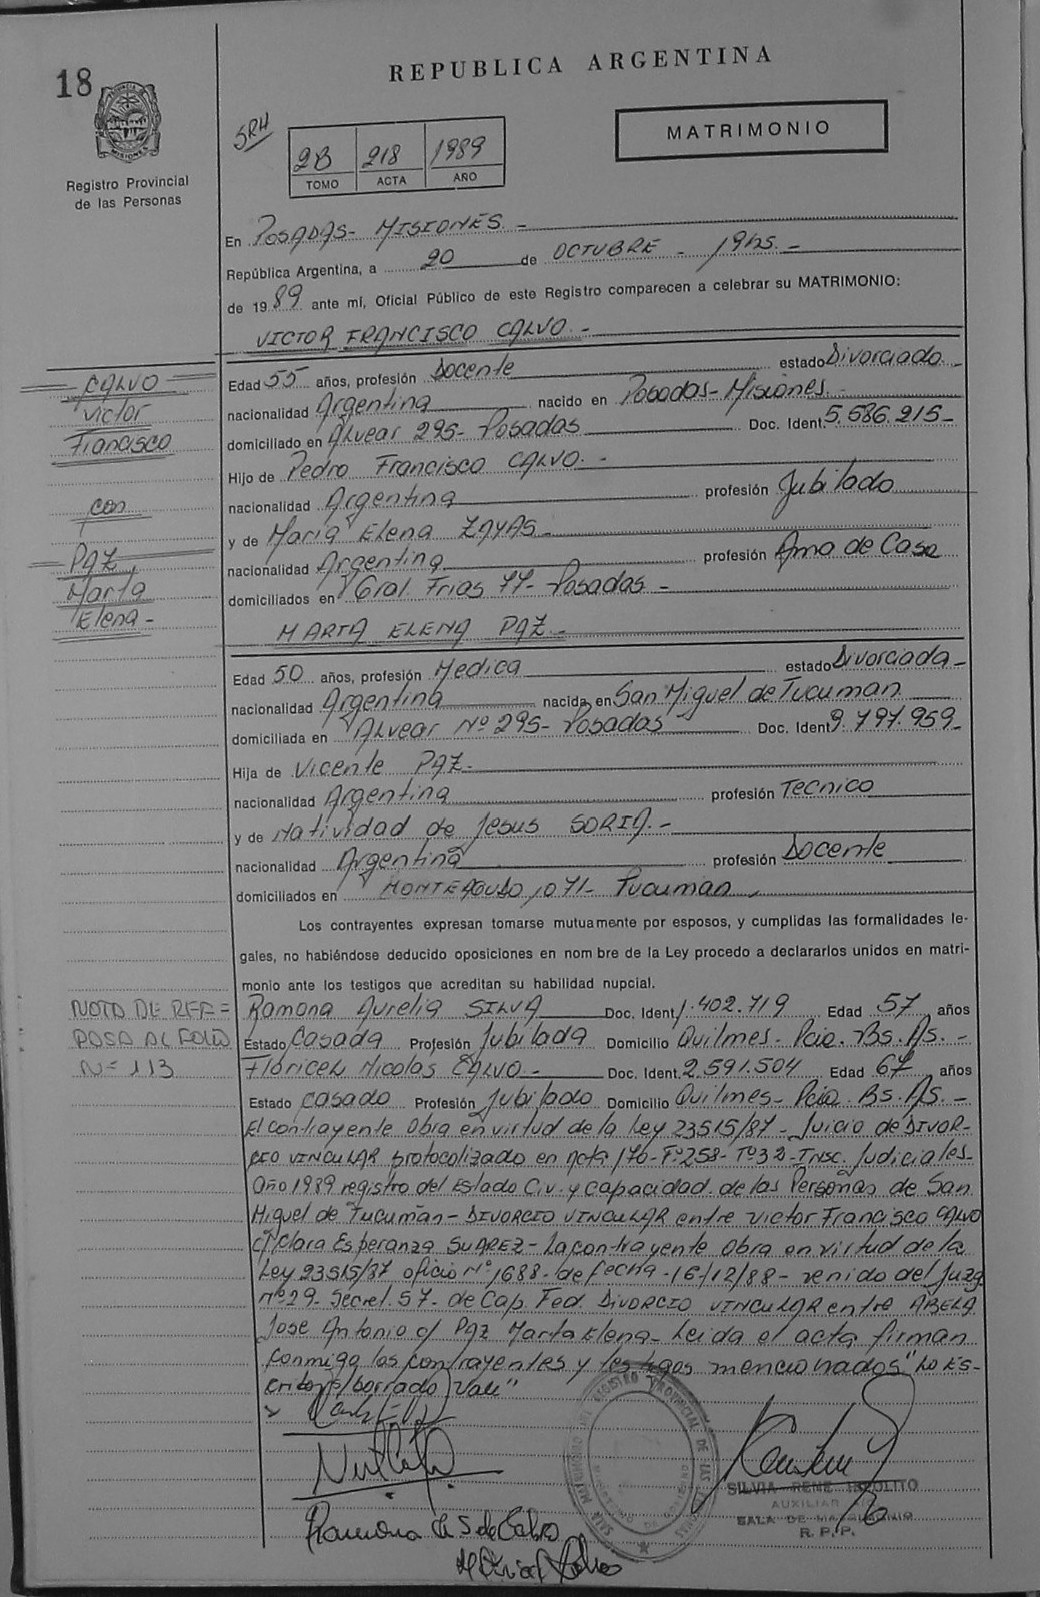 18
REPUBLICA ARGENTINA
Registro Provincial
de las Personas
SRH
2B 218 1989
TOMO ACTA AÑO
MATRIMONIO
En POSADAS- MISIONES -
República Argentina, a 20 de OCTUBRE - 19hs. -
de 1989 ante mí, Oficial Público de este Registro comparecen a celebrar su MATRIMONIO:
VICTOR FRANCISCO CALVO. -
CALVO
Victor
Francisco
con
PAZ
Marta
Elena -
Edad 55 años, profesión Docente estado Divorciado -
nacionalidad Argentina nacido en Posadas- Misiones -
domiciliado en Alvear 295- Posadas Doc. Ident. 5.586.215-
Hijo de Pedro Francisco CALVO. -
nacionalidad Argentina profesión Jubilado
y de Maria Elena ZAYAS -
nacionalidad Argentina profesión Ama de Casa
domiciliados en Gral. Frias 77- Posadas -
MARTA ELENA PAZ -
Edad 50 años, profesión Medica estado Divorciada -
nacionalidad Argentina nacida en San Miguel de Tucuman
domiciliada en Alvear Nº 295- Posadas Doc. Ident 9.797.959-
Hija de Vicente PAZ -
nacionalidad Argentina profesión Tecnico
y de Natividad de Jesus SORIA. -
nacionalidad Argentina profesión Docente
domiciliados en MONTEAGUDO 1071- Tucuman
Los contrayentes expresan tomarse mutuamente por esposos, y cumplidas las formalidades le-
gales, no habiéndose deducido oposiciones en nombre de la Ley procedo a declararlos unidos en matri-
monio ante los testigos que acreditan su habilidad nupcial.
NOTA DE REF=
PASA AL FOLIO
Nº 113
Ramona Aurelia SILVA Doc. Ident. 1.402.719 Edad 57 años
Estado Casada Profesión Jubilada Domicilio Quilmes- Pcia. Bs. As. -
Nicolás CALVO. - Doc. Ident. 2.591.504 Edad 67 años
Estado casado Profesión Jubilado Domicilio Quilmes- Pcia. Bs. As. -
El contrayente Obra en virtud de la ley 23515/87- Juicio de DIVOR-
CIO VINCULAR protocolizado en Acta 176- Fº 258- Tº 32- Insc. Judiciales-
Año 1989 registro del Estado Civ. y capacidad de las Personas de San
Miguel de Tucumán- DIVORCIO VINCULAR entre Victor Francisco CALVO
c/ Clara Esperanza SUAREZ- La contrayente Obra en virtud de la
Ley 23515/87 oficio Nº 1688- de fecha -16/12/88- venido del Juzg
nº 29- Secret. 57- de Cap. Fed. DIVORCIO VINCULAR entre ABELA
Jose Antonio c/ PAZ Marta Elena- Leida el acta firman
conmigo los contrayentes y testigos mencionados "Lo Es-
crito s/ borrado Vale"
REGISTRO PROVINCIAL DE LAS PERSONAS
SILVIA RENE IPOLITO
AUXILIAR
SALA DE MATRIMONIO
R. P. P.
Ramona de S de Calvo